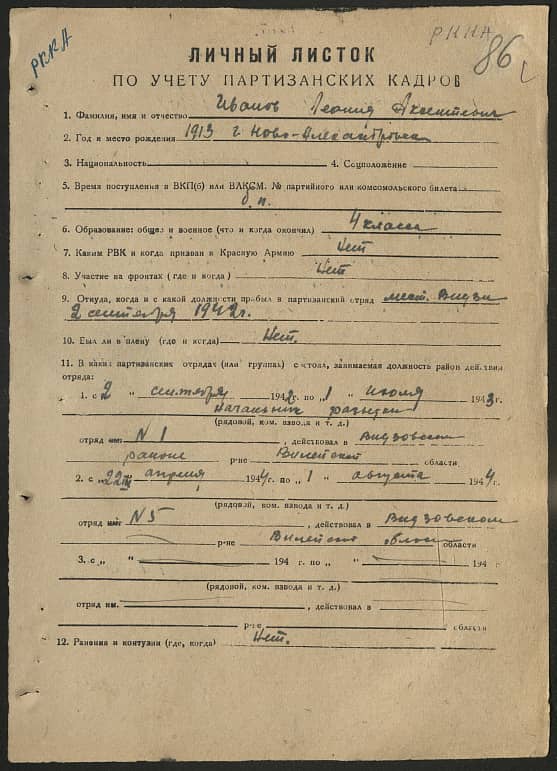 РККА
РККА
86
ЛИЧНЫЙ ЛИСТОК
ПО УЧЕТУ ПАРТИЗАНСКИХ КАДРОВ
1. Фамилия, имя и отчество Иванов Леонид
2. Год и место рождения 1913 г. Ново-Александровск
3. Национальность 4. Соцположение
5. Время поступления в ВКП(б) или ВЛКСМ. № партийного или комсомольского билета
б/п.
6. Образование: общее и военное (что и когда окончил) 4 класса
7. Каким РВК и когда призван в Красную Армию Нет
8. Участие на фронтах (где и когда) Нет
9. Откуда, когда и с какой должности прибыл в партизанский отряд мест. Видзы
2 сентября 1942 г.
10. Был ли в плену (где и когда) Нет.
11. В каких партизанских отрядах (или группах) состоял, занимаемая должность район действия
отряда:
1. с „ 2 “ сентября 1942 г. по „ 1 “ июля 1943 г.
Начальник разведки
(рядовой, ком. взвода и т. д.)
отряд им. N 1, действовал в Видзовском
районе р-не Вилейской области
2. с „ 22 “ апреля 1944 г. по „ 1 “ августа 1944 г.
(рядовой, ком. взвода и т. д.)
отряд им. N 5, действовал в Видзовском
р-не Вилейской области
3. с „ “ 194 г. по „ “ 194 г
(рядовой, ком. взвода и т. д.)
отряд им. , действовал в
р-не области
12. Ранения и контузии (где, когда) Нет.